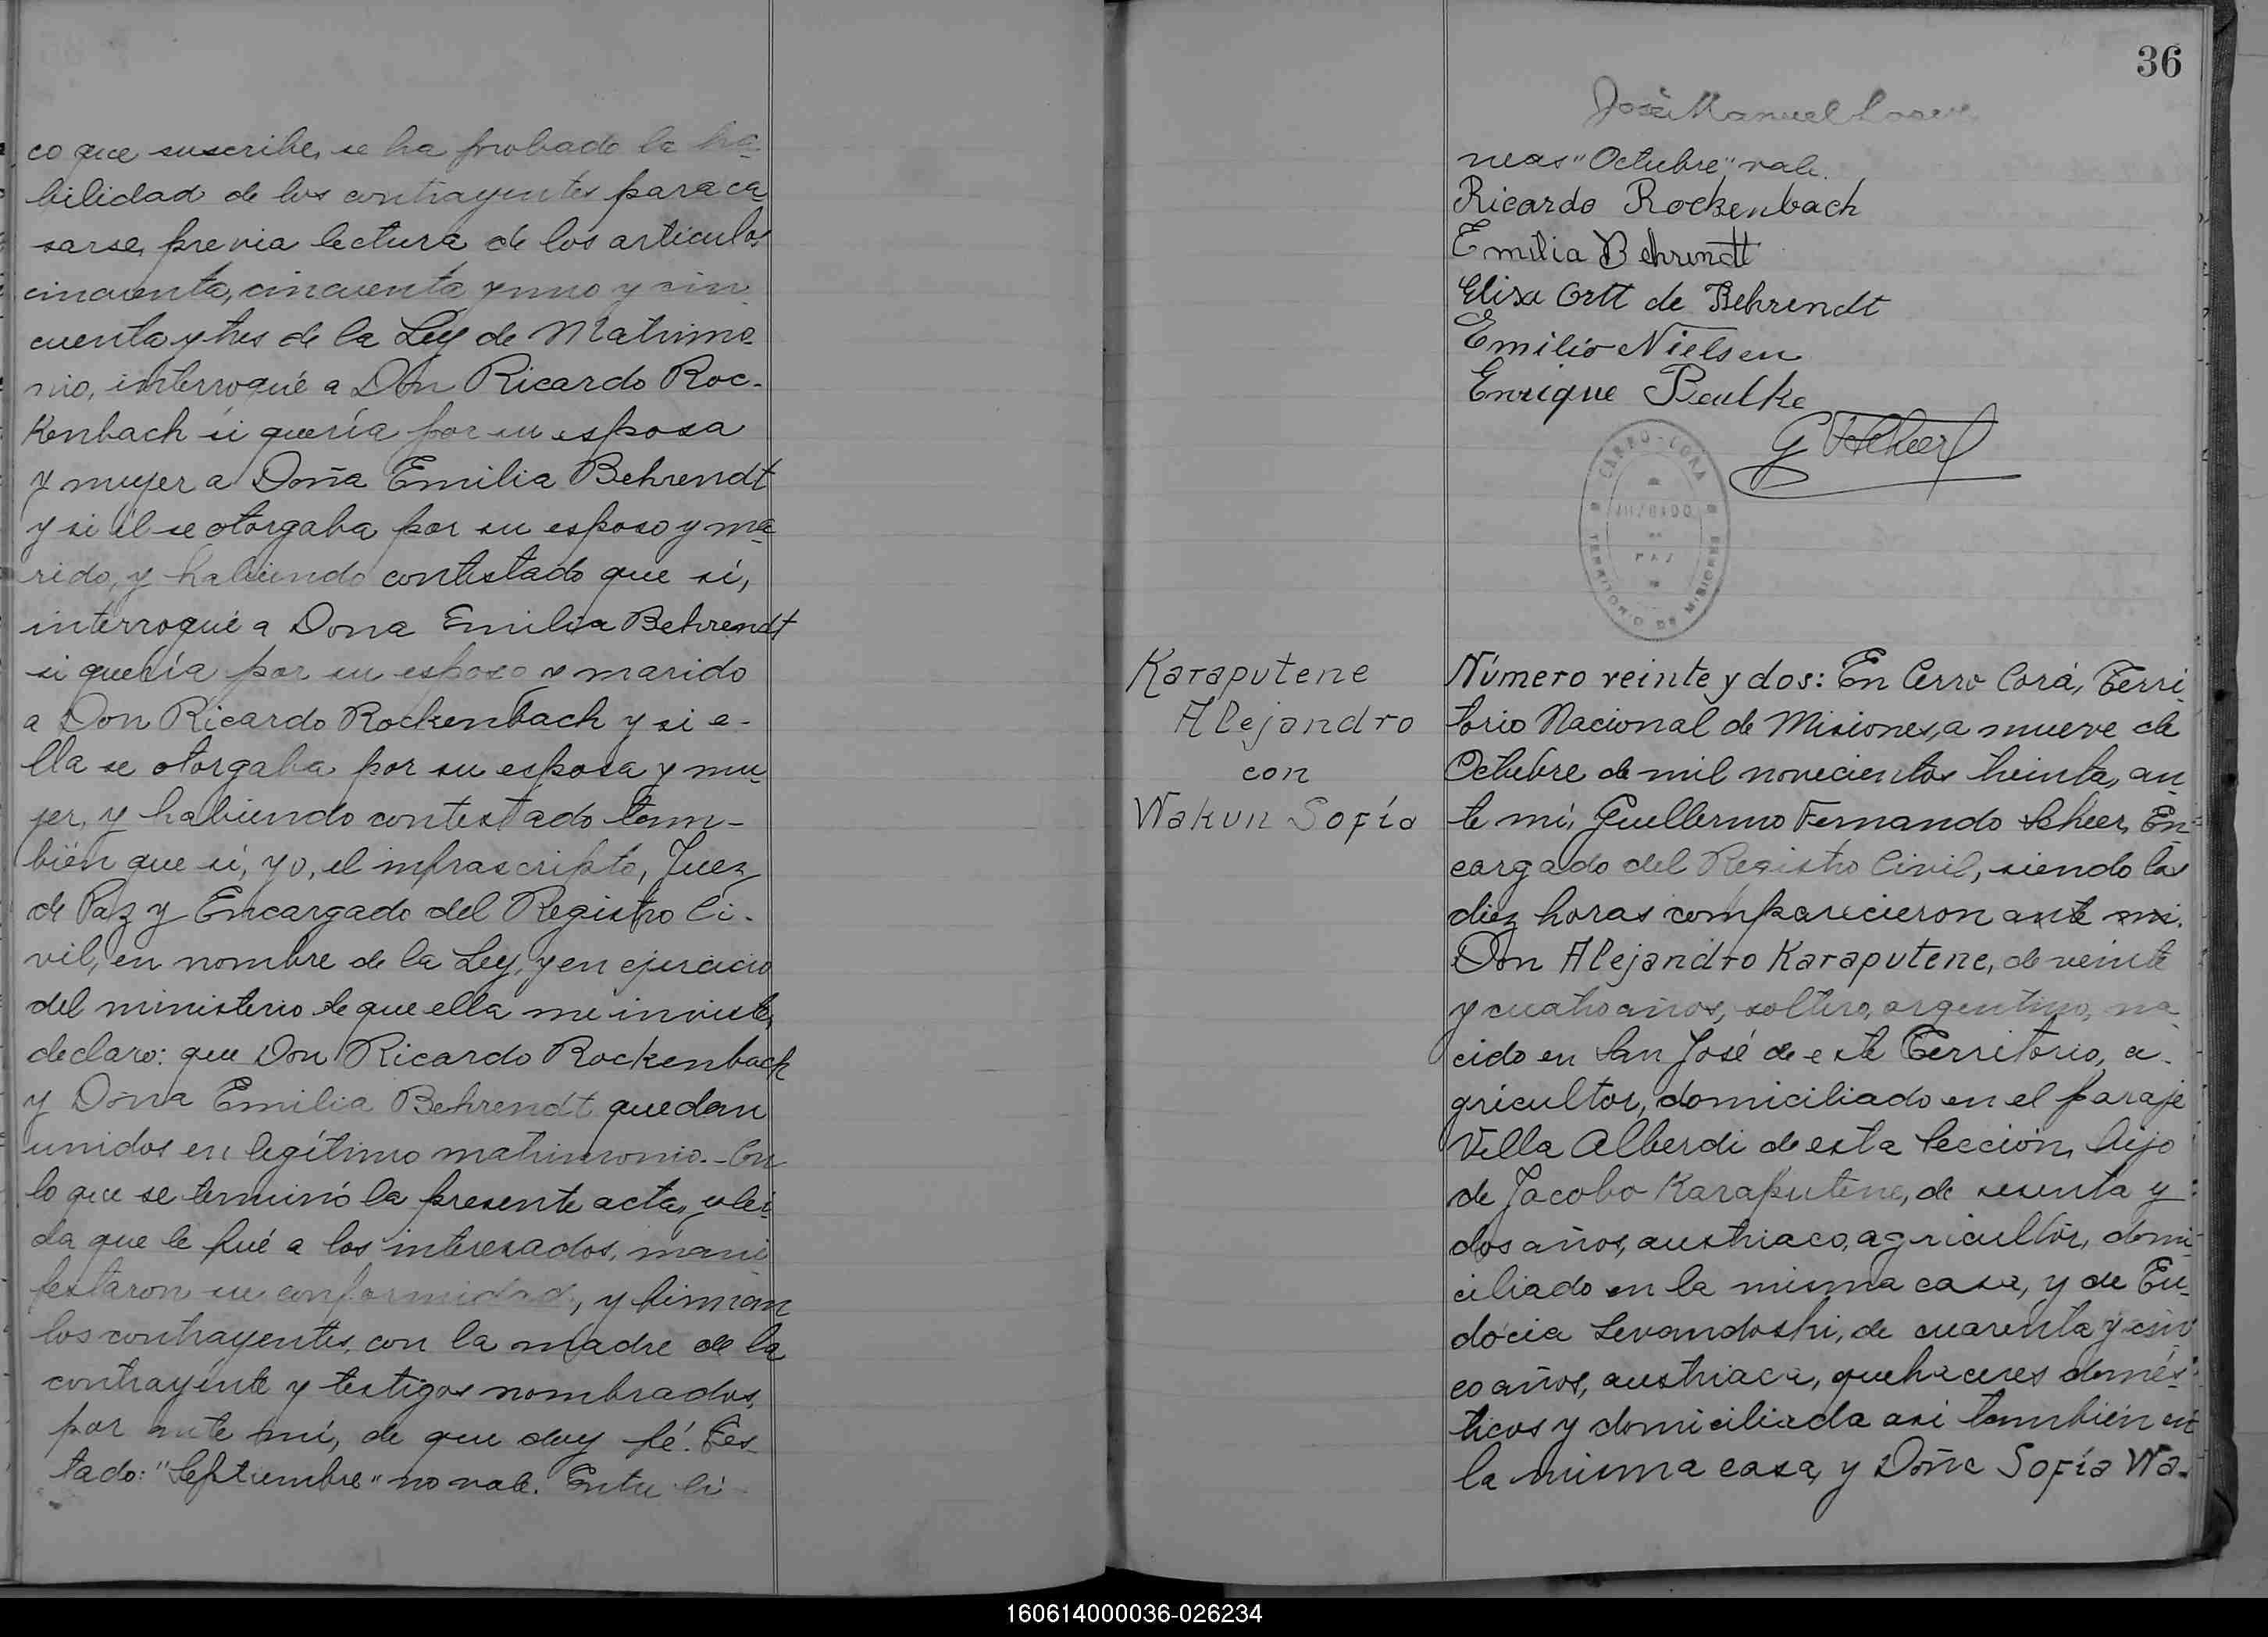 co que suscribe, se ha probado la ha-
bilidad de los contrayentes para ca-
sarse, previa lectura de los articulos
cincuenta, cincuenta y uno y cin-
cuenta y tres de la Ley de Matrimo-
nio, interrogué a Don Ricardo Roc-
kenbach si quería por su esposa
y mujer a Doña Emilia Behrendt
y si él se otorgaba por su esposo y ma-
rido, y habiendo contestado que sí,
interrogué a Dona Emilia Behrendt
si quería por su esposo y marido
a Don Ricardo Rockenbach y si e-
lla se otorgaba por su esposa y mu-
jer, y habiendo contestado tam-
bién que sí, yo, el infrascripto, Juez
de Paz y Encargado del Registro Ci-
vil, en nombre de la Ley, y en ejercicio
del ministerio de que ella me inviste,
declaro: que Don Ricardo Rockenbach
y Doña Emilia Behrendt quedan
unidos en legítimo matrimonio.- Con
lo que se terminó la presente acta, y leí-
da que le fué a los interesados, mani-
festaron su conformidad, y firman
los contrayentes, con la madre de la
contrayente y testigos nombrados,
por ante mí, de que doy fé. Tes-
tado: "Septiembre" no vale. Entre lí-
36
José Manuel
neas "Octubre", vale.
Ricardo Rockenbach
Emilia Behrendt
Elisa Ortt de Behrendt
Emilio Nielsen
Enrique
G Scheer
CERRO-CORA
JUZGADO
DE
PAZ
TERRITORIO DE MISIONES
Karaputene
Alejandro
con
Wakun Sofía
Número veinte y dos: En Cerro Corá, Terri-
torio Nacional de Misiones, a nueve de
Octubre de mil novecientos treinta, an-
te mí, Guillermo Fernando Scheer, En-
cargado del Registro Civil, siendo las
diez horas comparecieron ante mi.
Don Alejandro Karaputene, de veinte
y cuatro años, soltero, argentino, na-
cido en San José de este Territorio, a-
gricultor, domiciliado en el paraje
Villa Alberdi de esta Sección, hijo
de Jacobo Karaputene, de sesenta y
dos años, austriaco, agricultor, domi-
ciliado en la misma casa, y de Eu-
docia Levandoski, de cuarenta y cin-
co años, austriaca, quehaceres domés-
ticos y domiciliada asi también en
la misma casa, y Doña Sofía Wa-
160614000036-026234